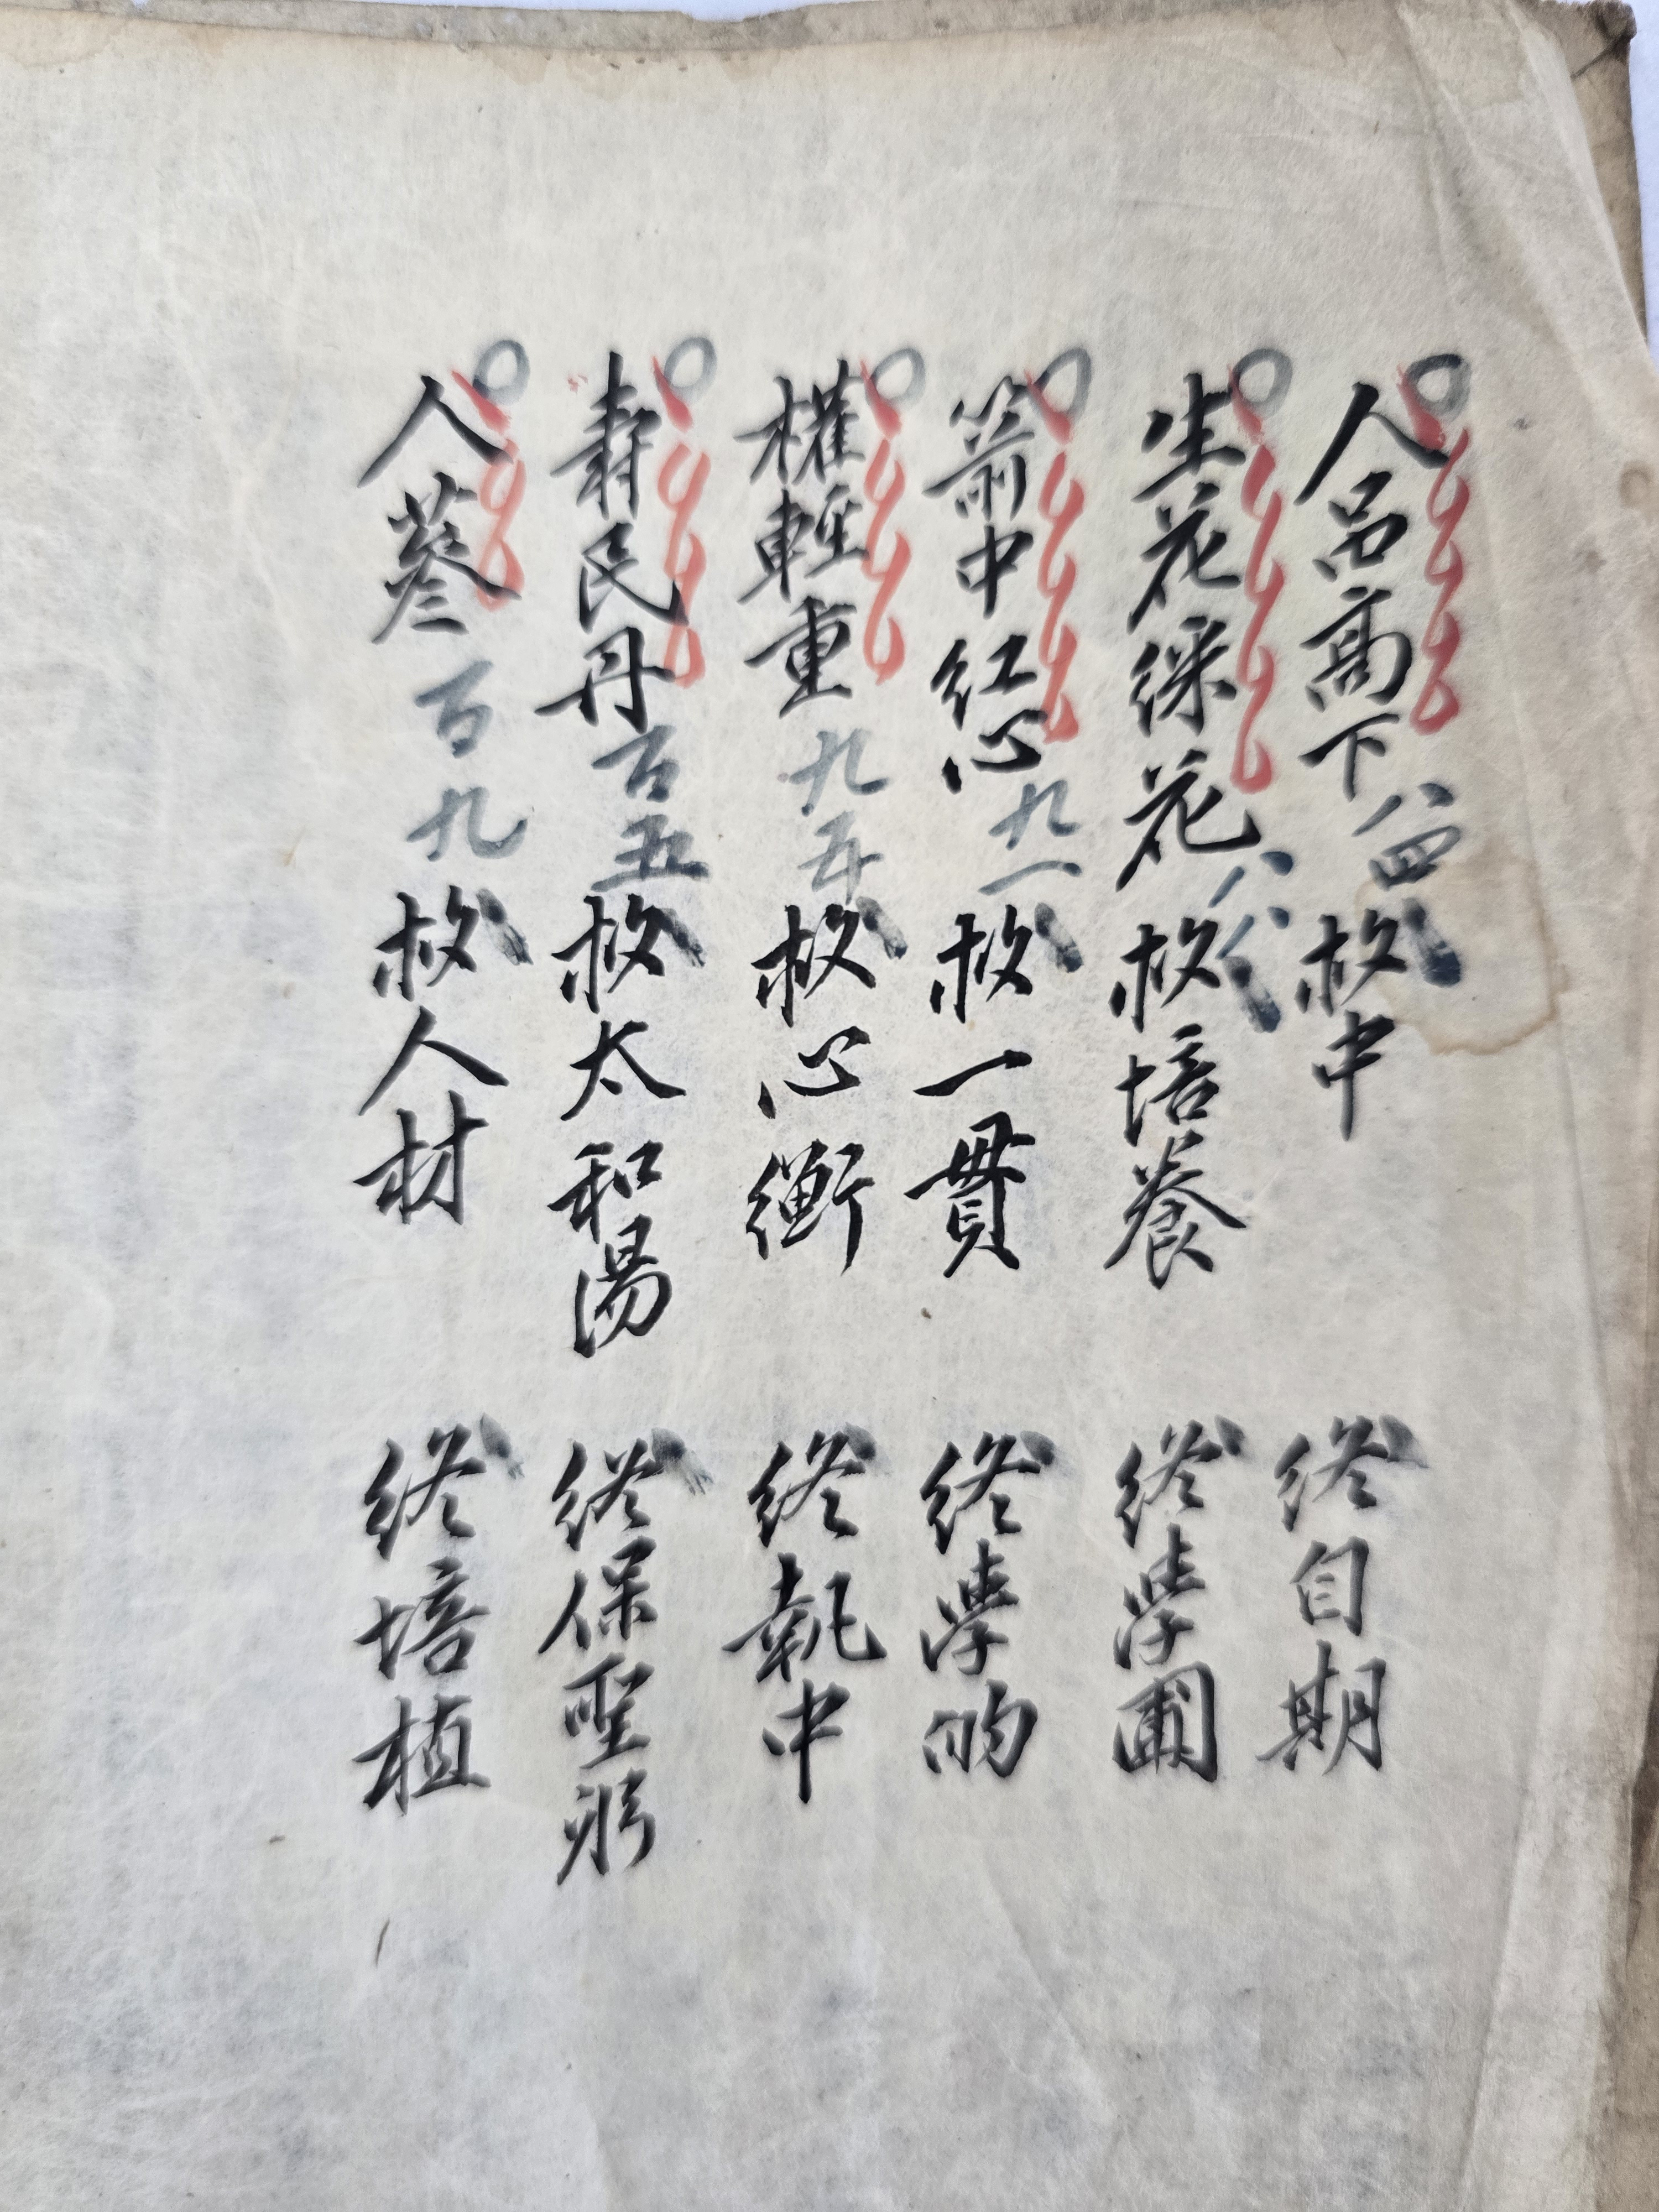 人品高下八四枚中　終自期
生花綵花八八枚培養　終學圃
箭中紅心九一枚一貫　終學的
權輕重九五枚心衡　終執中
壽民丹百五枚太和湯　終保聖躬
人蔘百九枚人材　終培植